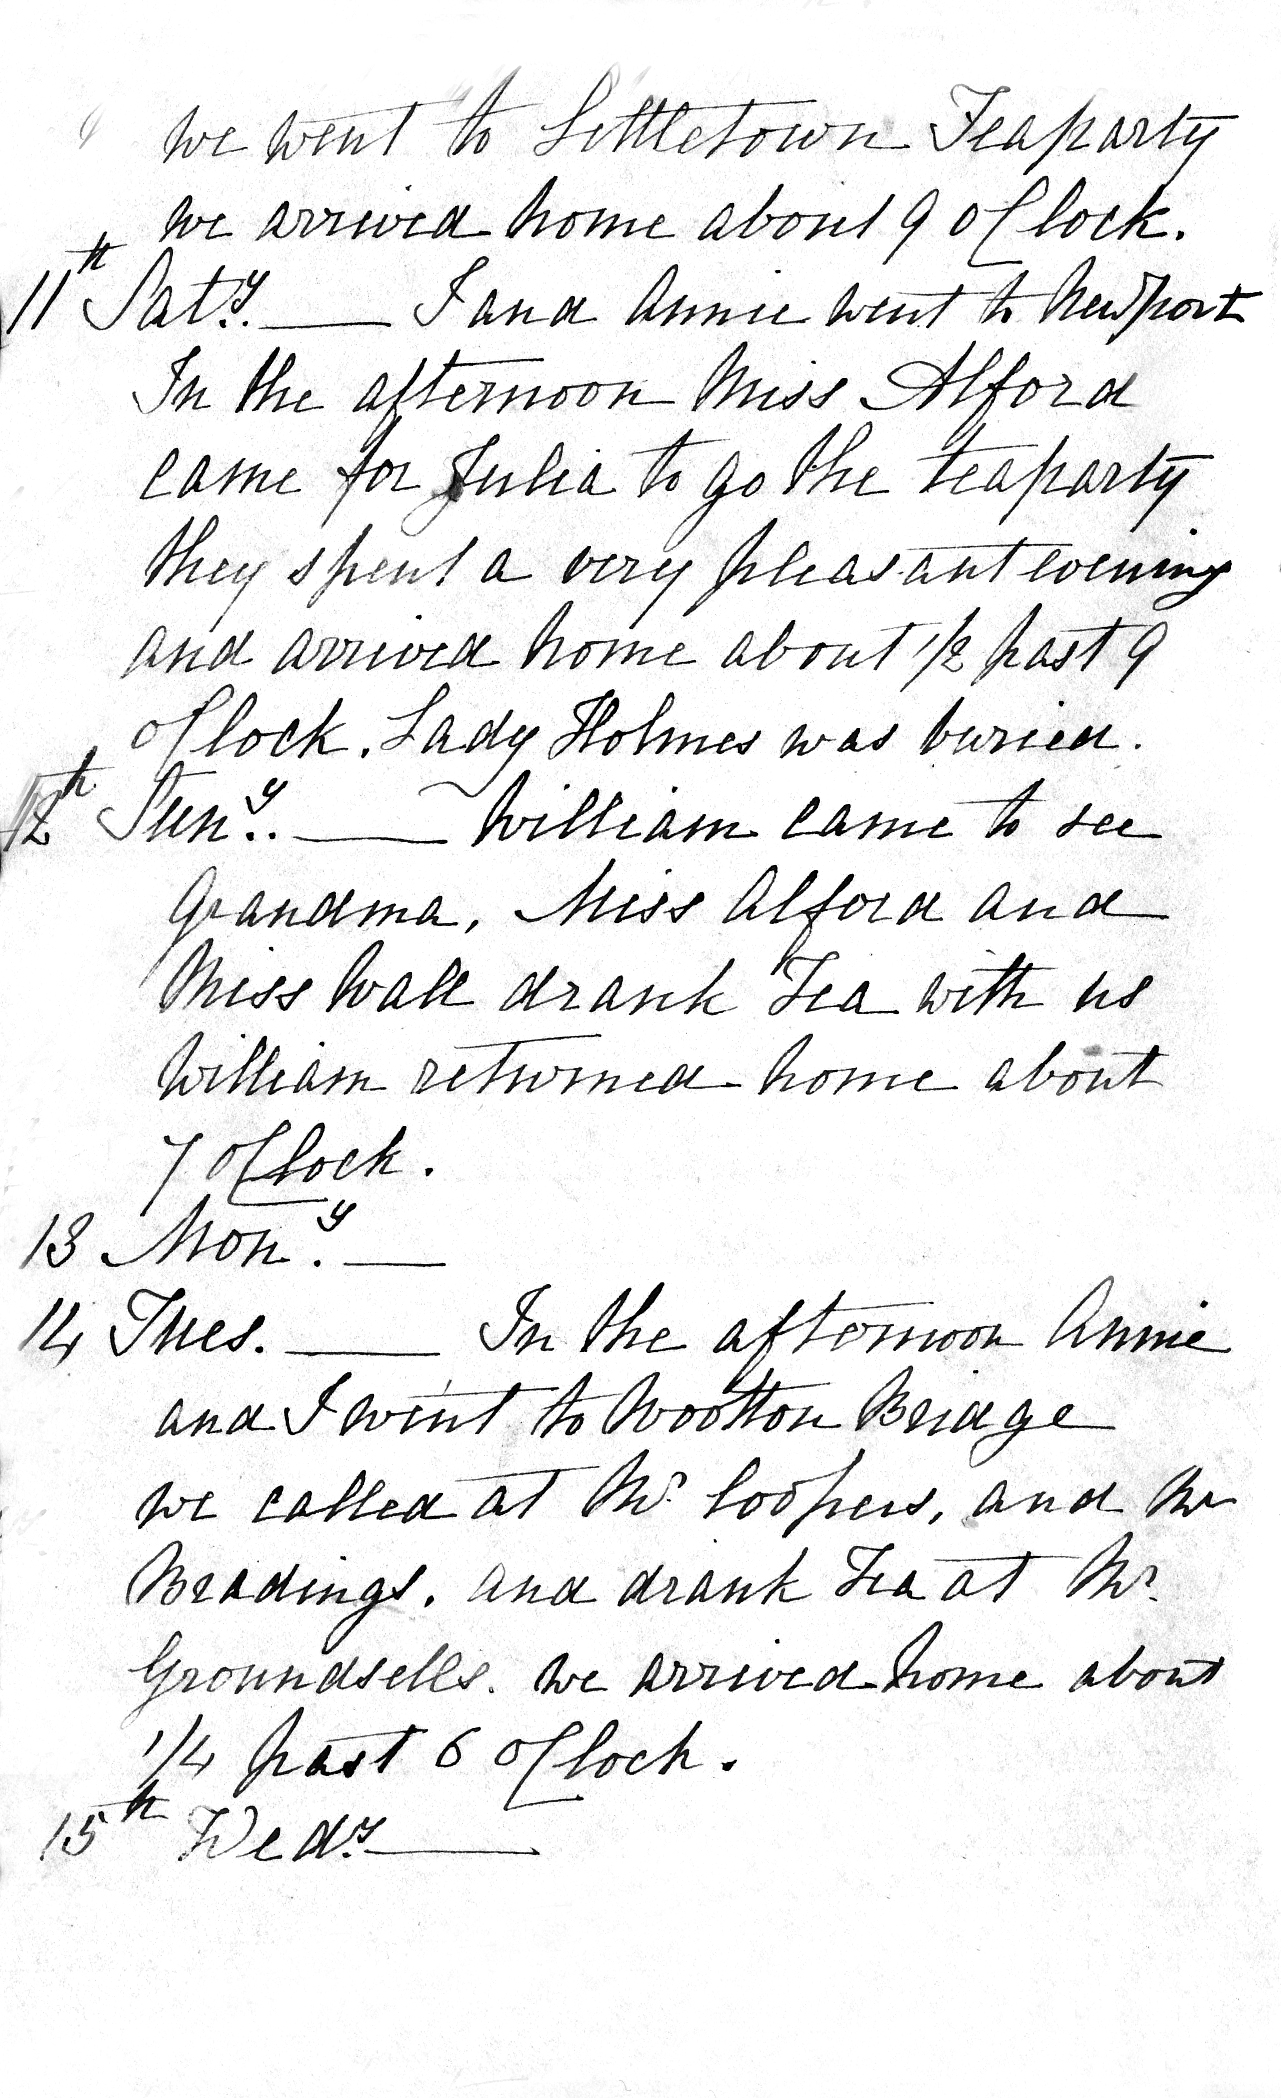 we went to Littletown Teaparty
we arrived home about 9 oClock.
11th Saty. — I and Annie went to Newport
In the afternoon Miss Alford
came for Julia to go the teaparty
they spent a very pleasant evening
and arrived home about 1/2 past 9
oClock. Lady Holmes was buried.
12th Suny. — William came to see
Grandma, Miss Alford and
Miss Wall drank Tea with us
William returned home about
7 oClock.
13 Mony. —
14 Tues. — In the afternoon Annie
and I went to Wootton Bridge
we called at Mr. Coopers, and Mr
Bradings. and drank Tea at Mr.
Groundsells. we arrived home about
1/4 past 6 oClock.
15th Wedy. —